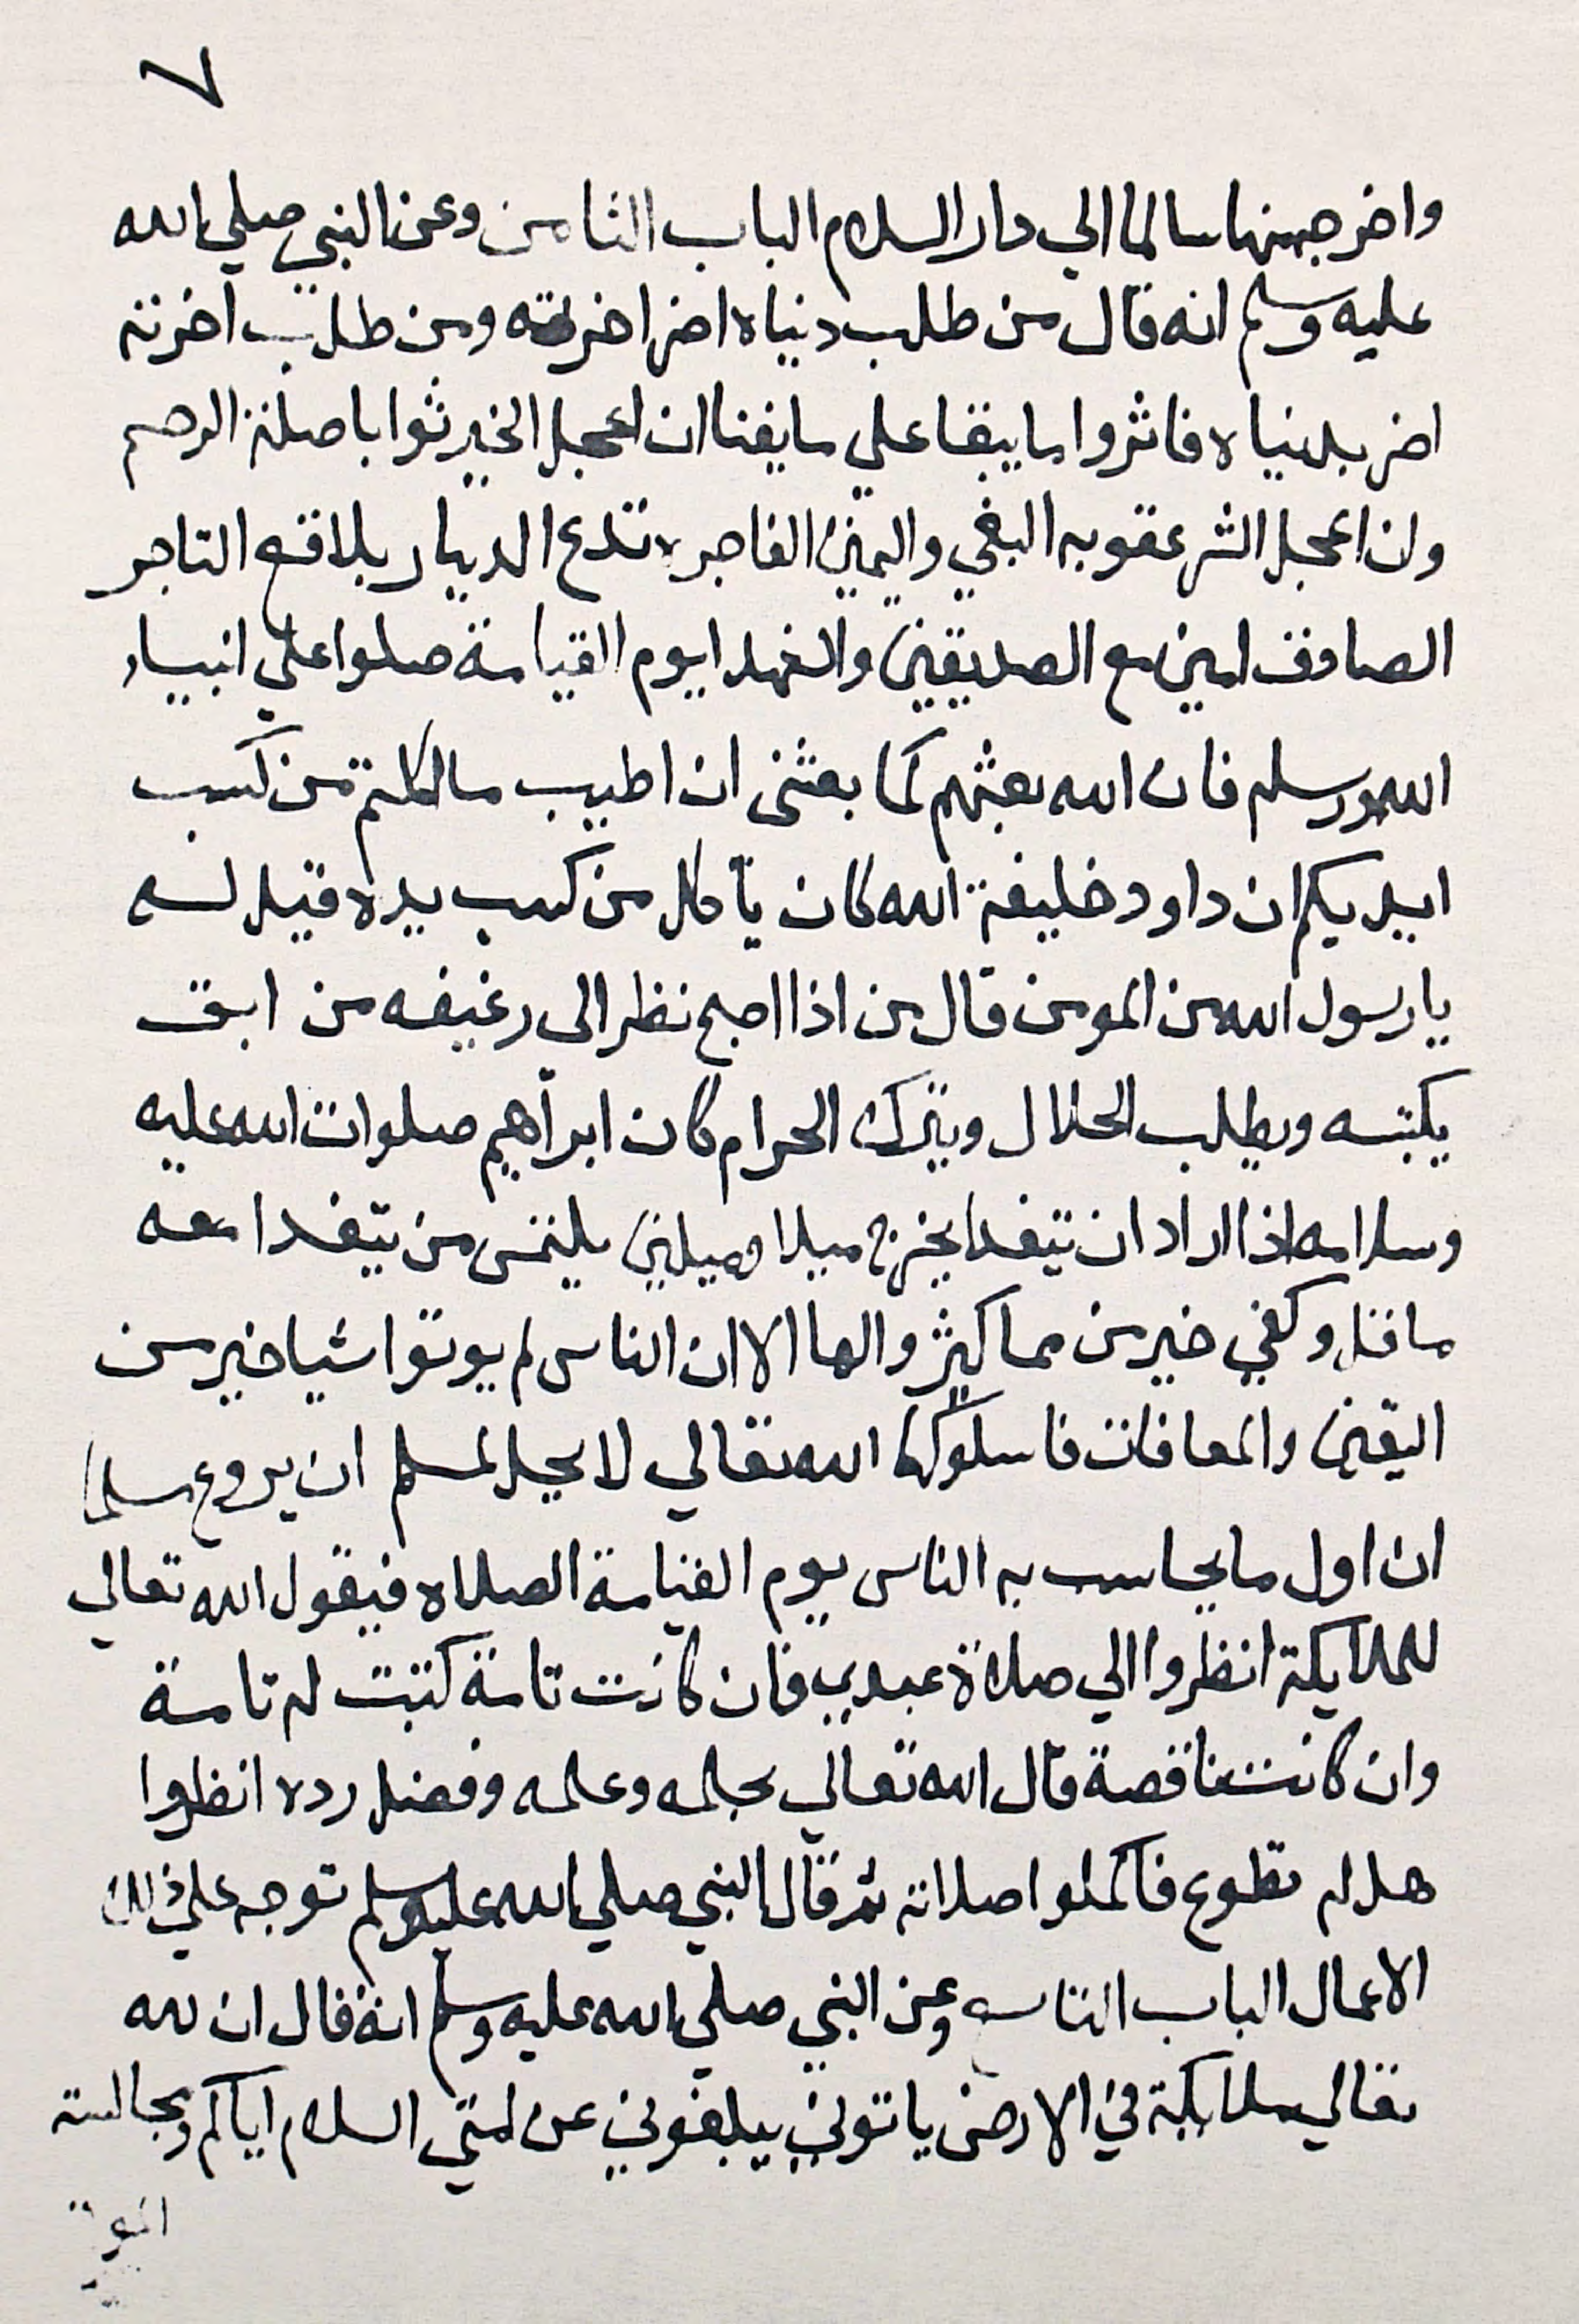 ٧
واخرجه منها سالما الي دار السلام الباب الثامن وعن النبي صلي الله
عليه وسلم انه قال من طلب دنياه اضر اخرته ومن طلب اخرته
اضر بدنياه فاثروا ما يبقا علي ما يفنا ان اعجل الخير ثوابا صلة الرحم
وان اعجل الشر عقوبه البغي واليمين الفاجره تدع الديار بلاقع التاجر
الصادق امين مع الصديقين والشهدا يوم القيامة صلوا علي انبياء
الله ورسله فان الله بعثهم كما بعثني ان اطيب ما اكلتم من كسب
ايديكم ان داود خليفة الله كان ياكل من كسب يده فقيل له
يا رسول الله من المومن قال من اذا اصبح نظر الي رغيفه من اين
يكتبسه ويطلب الحلال ويترك الحرام كان ابراهيم صلوات الله عليه
وسلامه اذا اراد ان يتغدا يخرج ميلا وميلين يلتمس من يتغدا معه
ما قل وكفي خير من مما كثر والها الا ان الناس لم يوتوا شيا خير من
اليقين والمعافات فاسلوكها الله تعالي لا يحل لمسلم ان يروع مسلما
ان اول ما يحاسب به الناس يوم القيامة الصلاه فيقول الله تعالي
للملايكة انظروا الي صلاة عبدي فان كانت تامة كتبت له تامة
وان كانت ناقصة قال الله تعالي بحلمه وعلمه وفضل رده انظروا
هل له تطوع فاكملوا صلاته ثم قال النبي صلي الله عليه وسلم توجه علي ذلك
الاعمال الباب التاسع وعن النبي صلي الله عليه وسلم انه قال ان لله
تعالي ملايكة في الارض ياتوني يبلغوني عن امتي السلام اياكم ومجالسة